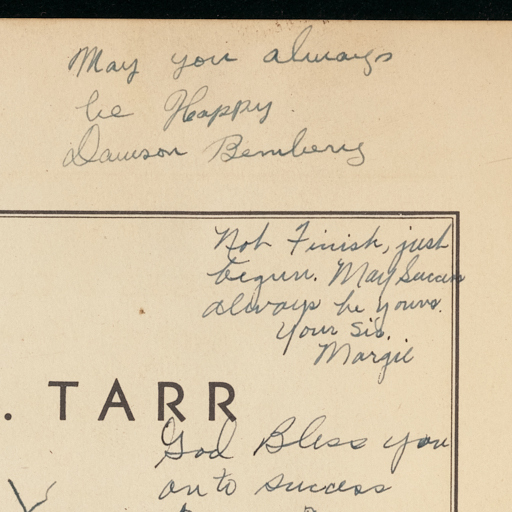 May you always
be Happy.
Dawson Bemberg
Not Finish, just
begun. May Success
always be yours.
Your Sis.
Margie
. TARR
God Bless you
on to success